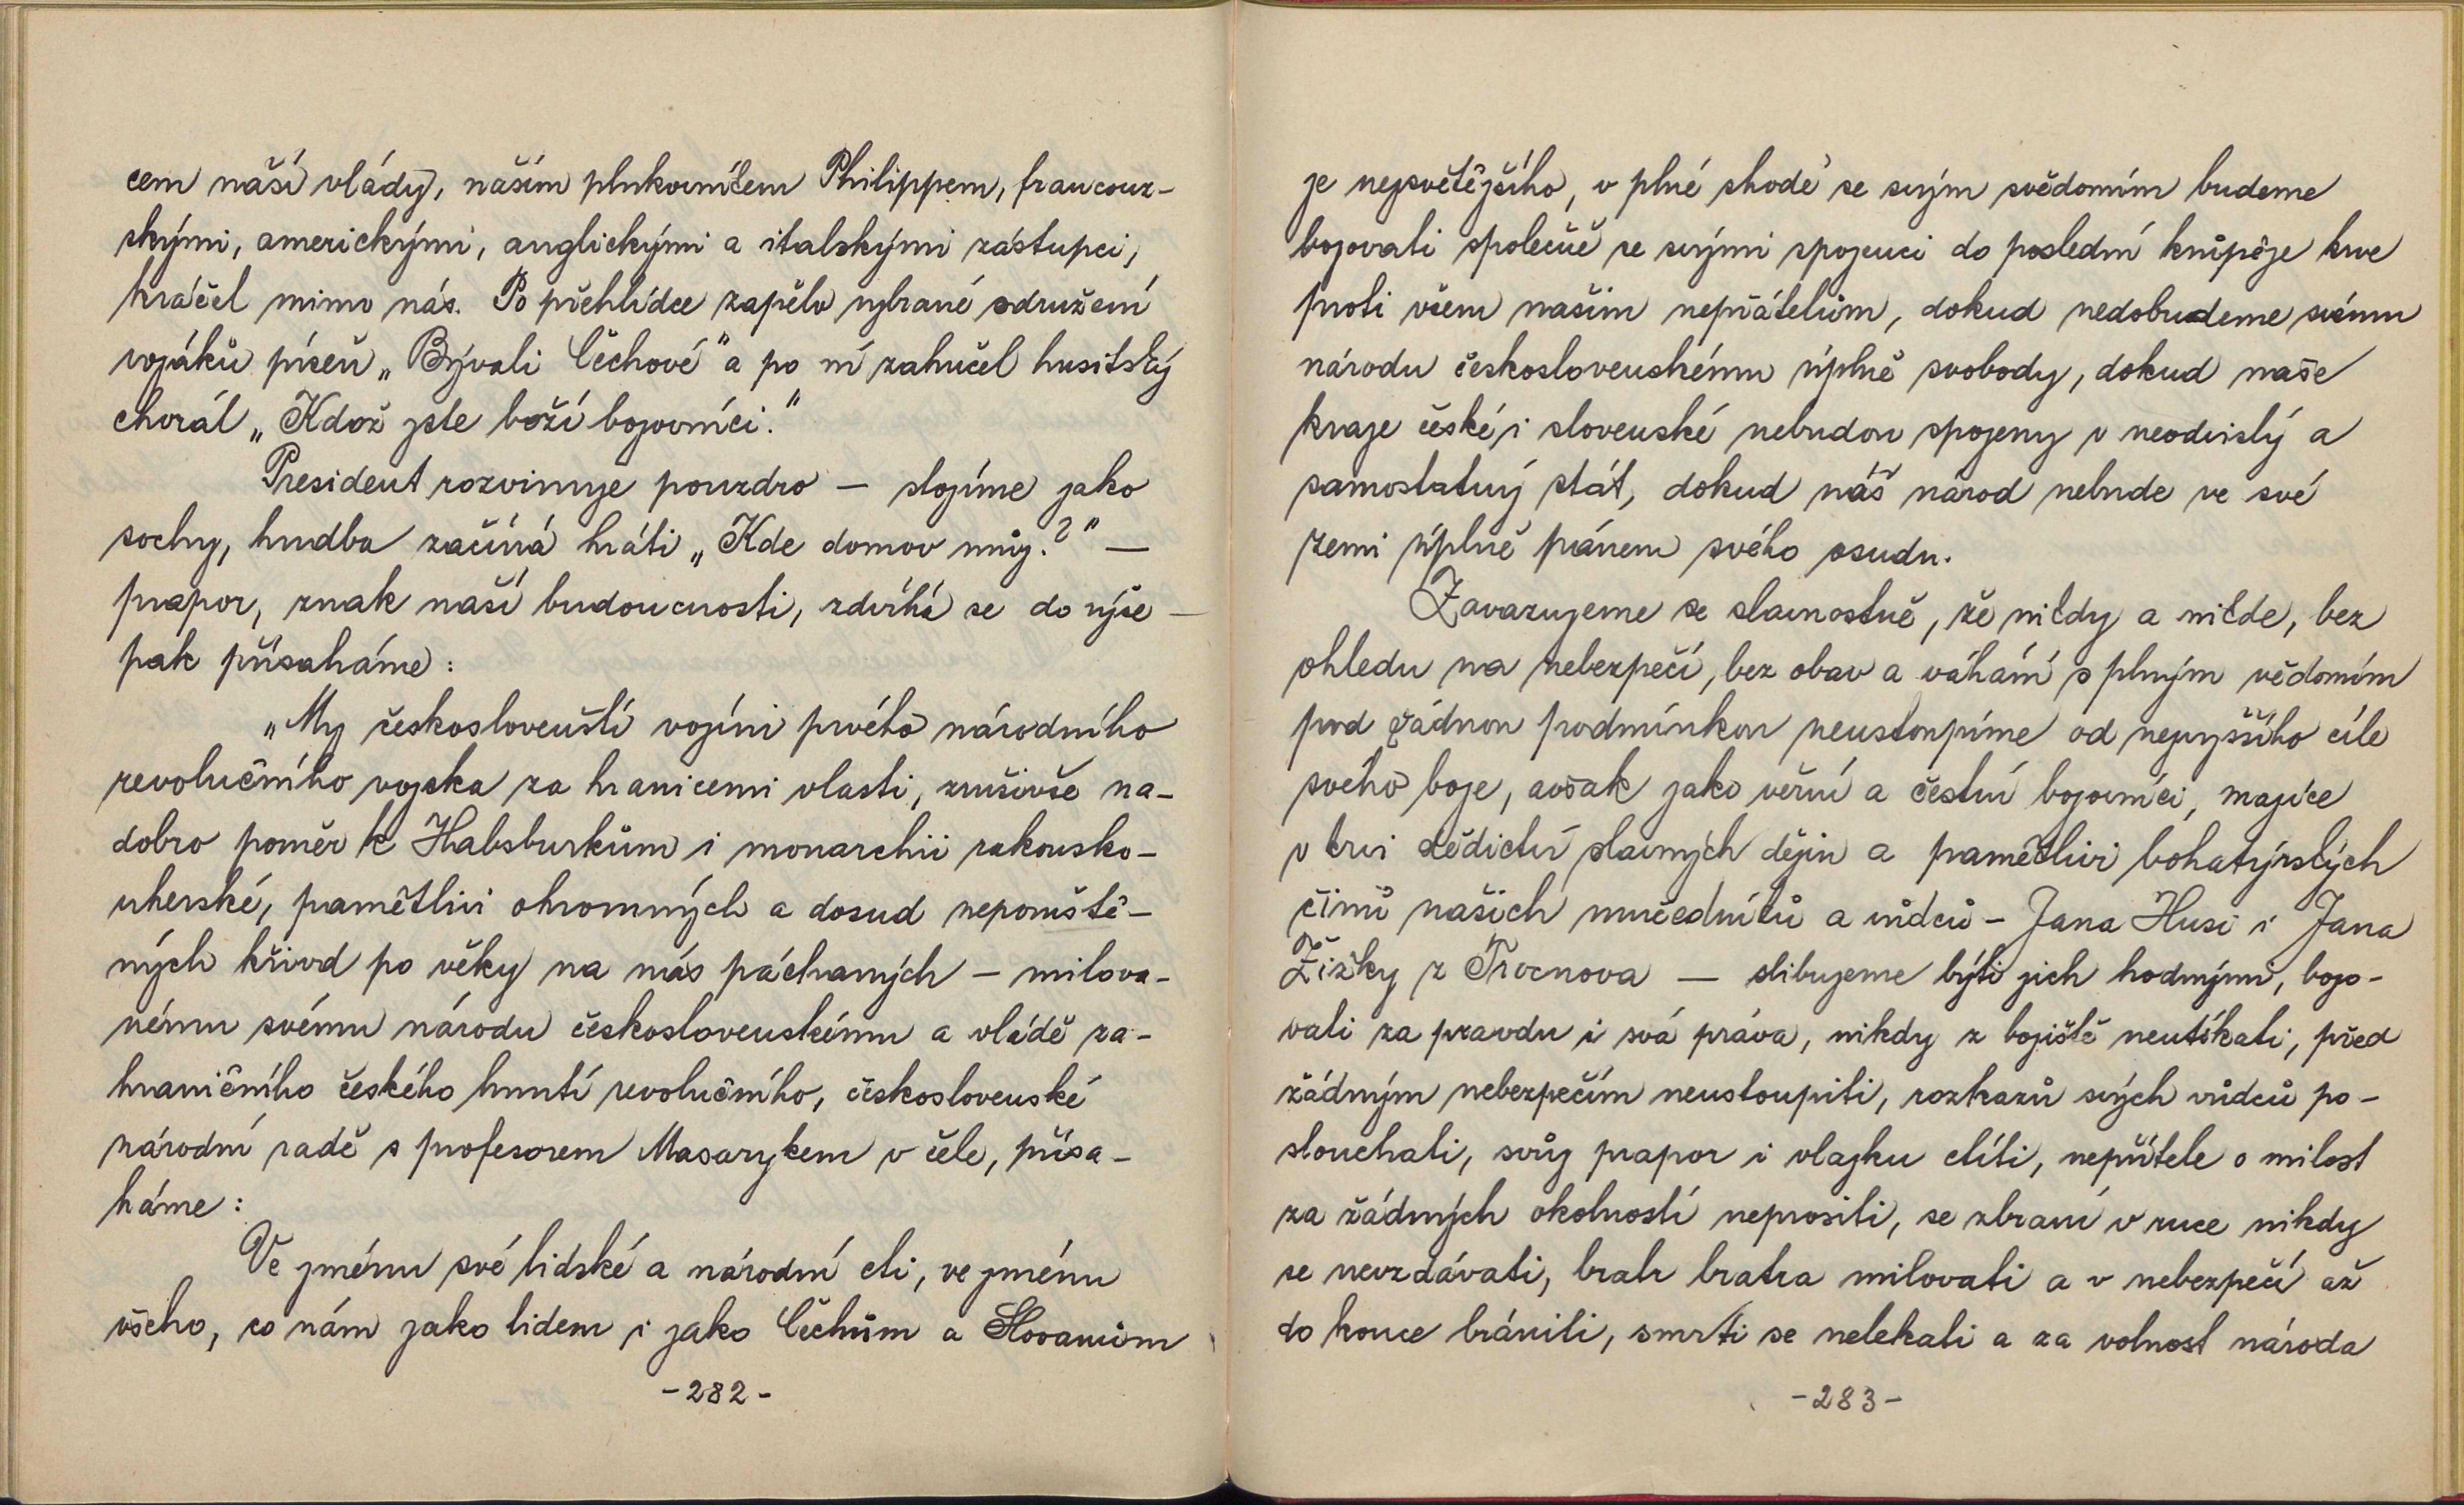 cem naší vlády, naším plukovníkem Philippem, francouz-
skými, americkými, anglickými a italskými zástupci,
kráčel mimo nás. Po přehlídce zapělo vybrané sdružení
vojáků píseň „Bývali Čechové" a po ní zahučel husitský
chorál „Kdož jste boží bojovníci."
President rozvinuje pouzdro — stojíme jako
sochy, hudba začíná hráti „Kde domov můj?" —
prapor, znak naší budoucnosti, zdvíhá se do výše —
pak přísaháme:
„My českoslovenští vojíni prvého národního
revolučního vojska za hranicemi vlasti, zrušivše na-
dobro poměr k Habsburkům i monarchii rakousko-
uherské, pamětlivi ohromných a dosud nepomstě-
ných křivd po věky na nás páchaných — milova-
nému svému národu československému a vládě za-
hraničního českého hnutí revolučního, československé
národní radě s profesorem Masarykem v čele, přísa-
háme:
Ve jménu své lidské a národní cti, ve jménu
všeho, co nám jako lidem i jako Čechům a Slovanům
-282-
je nejsvětějšího, v plné shodě se svým svědomím budeme
bojovati společně se svými spojenci do poslední krůpěje krve
proti všem našim nepřátelům, dokud nedobudeme svému
národu československému úplné svobody, dokud naše
kraje české i slovenské nebudou spojeny v neodvislý a
samostatný stát, dokud náš národ nebude ve své
zemi úplně pánem svého osudu.
Zavazujeme se slavnostně, že nikdy a nikde, bez
ohledu na nebezpečí, bez obav a váhání s plným vědomím
pod žádnou podmínkou neustoupíme od nejvyššího cíle
svého boje, avšak jako věrní a čestní bojovníci, majíce
v krvi dědictví slavných dějin a pamětlivi bohatýrských
činů našich mučedníků a vůdců — Jana Husi i Jana
Žižky z Trocnova — slibujeme býti jich hodnými, bojo-
vati za pravdu i svá práva, nikdy z bojiště neutíkati, před
žádným nebezpečím neustoupiti, rozkazů svých vůdců po-
slouchati, svůj prapor i vlajku ctíti, nepřítele o milost
za žádných okolností neprositi, se zbraní v ruce nikdy
se nevzdávati, bratr bratra milovati a v nebezpečí až
do konce brániti, smrti se nelekati a za volnost národa
-283-